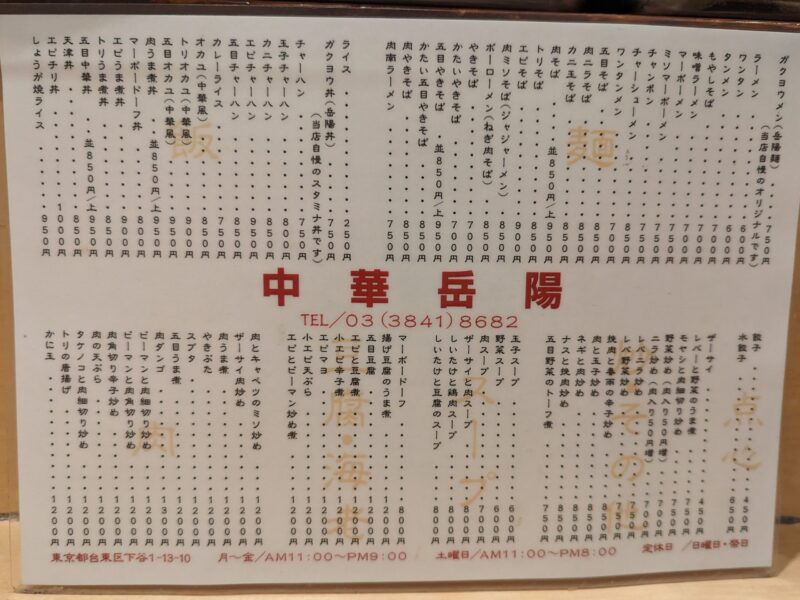 ガクヨウメン(岳陽麺)・・・・750円
(当店自慢のオリジナルです)
ラーメン
ワンタン・・・・600円
タンメン・・・・600円
もやしそば・・・・700円
味噌ラーメン・・・・700円
マーボーメン・・・・700円
ミソマーボーメン・・・・750円
チャンポン・・・・750円
チャーシューメン・・・・750円
ワンタンメン・・・・850円
五目そば
肉ニラそば
カニ玉そば
肉そば・・・・並850円/上950円
トリそば
エビそば・・・・950円
肉ミソそば(ジャジャーメン)
ボーローメン(ねぎ肉そば)・・・・850円
やきそば・・・・700円
かたいやきそば・・・・700円
五目やきそば・・・・並850円/上950円
かたい五目やきそば・・・・850円
肉やきそば・・・・850円
肉南ラーメン・・・・750円
麺
ライス・・・・250円
ガクヨウ丼(岳陽丼)・・・・750円
(当店自慢のスタミナ丼です)
チャーハン・・・・750円
玉子チャーハン・・・・800円
カニチャーハン・・・・850円
エビチャーハン・・・・950円
五目チャーハン・・・・850円
カレーライス・・・・750円
オカユ(中華風)・・・・850円
トリオカユ(中華風)・・・・850円
五目オカユ(中華風)・・・・950円
肉うま煮丼・・・・並850円/上950円
マーボードーフ丼・・・・850円
エビうま煮丼・・・・900円
トリうま煮丼・・・・850円
五目中華丼・・・・並850円/上950円
天津丼・・・・850円
エビチリ丼・・・・1000円
しょうが焼ライス・・・・950円
飯
中華岳陽
TEL/03(3841)8682
餃子・・・・450円
水餃子・・・・650円
点心
ザーサイ・・・・450円
レバーと野菜のうま煮
モヤシと肉細切り炒め
野菜炒め(肉入り50円増)
ニラ炒め(肉入り50円増)
レバニラ炒め
レバ野菜炒め
挽肉と春雨の辛子炒め
肉と玉子炒め
ネギと肉炒め
ナスと挽肉炒め
五目野菜のトーフ煮・・・・750円
玉子スープ・・・・600円
野菜スープ・・・・600円
肉スープ・・・・700円
ザーサイと肉スープ・・・・800円
しいたけと鶏肉スープ・・・・800円
しいたけと豆腐のスープ・・・・800円
スープ
マーボードーフ・・・・800円
揚げ豆腐のうま煮・・・・1200円
五目豆腐・・・・1200円
エビと豆腐煮・・・・1200円
小エビ辛子煮・・・・1200円
エビマヨ・・・・1200円
小エビ天ぷら・・・・1200円
エビとピーマン炒め煮・・・・1200円
肉とキャベツのミソ炒め・・・・1200円
ザーサイ肉炒め・・・・1200円
肉うま煮・・・・1200円
やきぶた・・・・1200円
スブタ・・・・1200円
五目うま煮・・・・1200円
肉ダンゴ・・・・1300円
ピーマンと肉細切り炒め・・・・1200円
ピーマンと肉角切り炒め・・・・1200円
肉角切り辛子炒め・・・・1200円
肉の天ぷら・・・・1200円
タケノコと肉細切り炒め・・・・1200円
トリの唐揚げ・・・・1200円
かに玉・・・・1200円
肉
東京都台東区下谷1-13-10
月〜金/AM11:00〜PM9:00
土曜日/AM11:00〜PM8:00
定休日 /日曜日・祭日